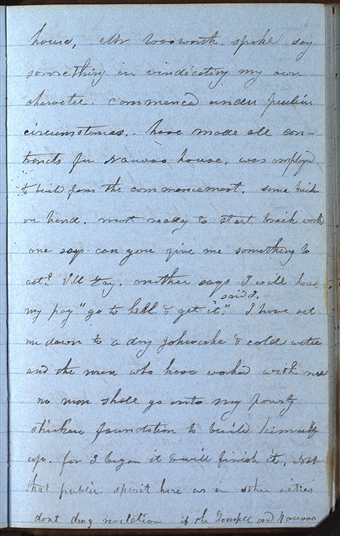 house, Mr Woo worth. spoke say
something in vindicating my own
character. commenced under peculiar
circumstances. have made all con-
tracts for Nauvoo house. was employed
to build from the commencement. some brick
on hand. most ready to start brick work
one says can you give me something to
eat? I'll try. another says I will have
my pay "go to hell & get it." said I. I have set
me down to a dry johncake & cold water
and the men who have worked with me
no man shall go onto my poverty
stricken foundation to build himself
up. for I began it & will finish it, Not
that public spirit here as in other cities
dont deny revelation if the Temple and Nauvoo